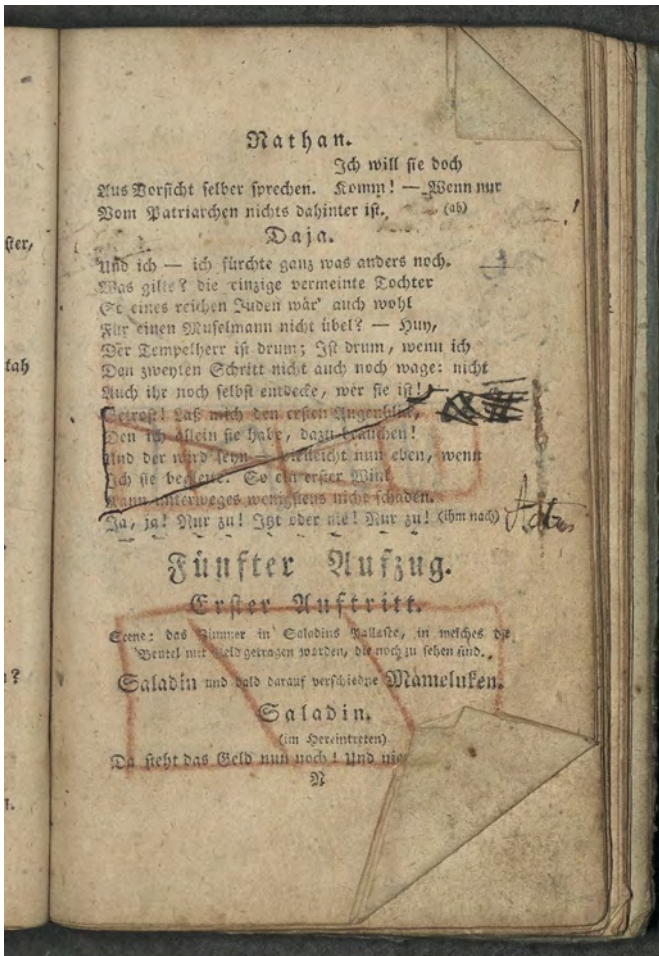 ster,
tah
?
Nathan.
Ich will sie doch
Aus Vorsicht selber sprechen. Komm! — Wenn nur
Vom Patriarchen nichts dahinter ist. (ab)
Daja.
Und ich — ich fürchte ganz was anders noch.
Was gilts? die einzige vermeinte Tochter
So eines reichen Juden wär' auch wohl
Für einen Muselmann nicht übel? — Huy,
Der Tempelherr ist drum; Ist drum, wenn ich
Den zweyten Schritt nicht auch noch wage: nicht
Auch ihr noch selbst entdecke, wer sie ist! —
Getrost! Laß mich den ersten Augenblick,
Den ich allein sie habe, dazu brauchen!
Und der wird seyn — vielleicht nun eben, wenn
Ich sie begleite. So ein erster Wink
Kann unterweges wenigstens nicht schaden.
Ja, ja! Nur zu! Itzt oder nie! Nur zu! (ihm nach)
Fünfter Aufzug.
Erster Auftritt.
Scene: das Zimmer in Saladins Pallaste, in welches die
Beutel mit Geld getragen worden, die noch zu sehen sind.
Saladin und bald darauf verschiedne Mameluken.
Saladin.
(im Hereintreten)
Da steht das Geld nun noch! Und
N